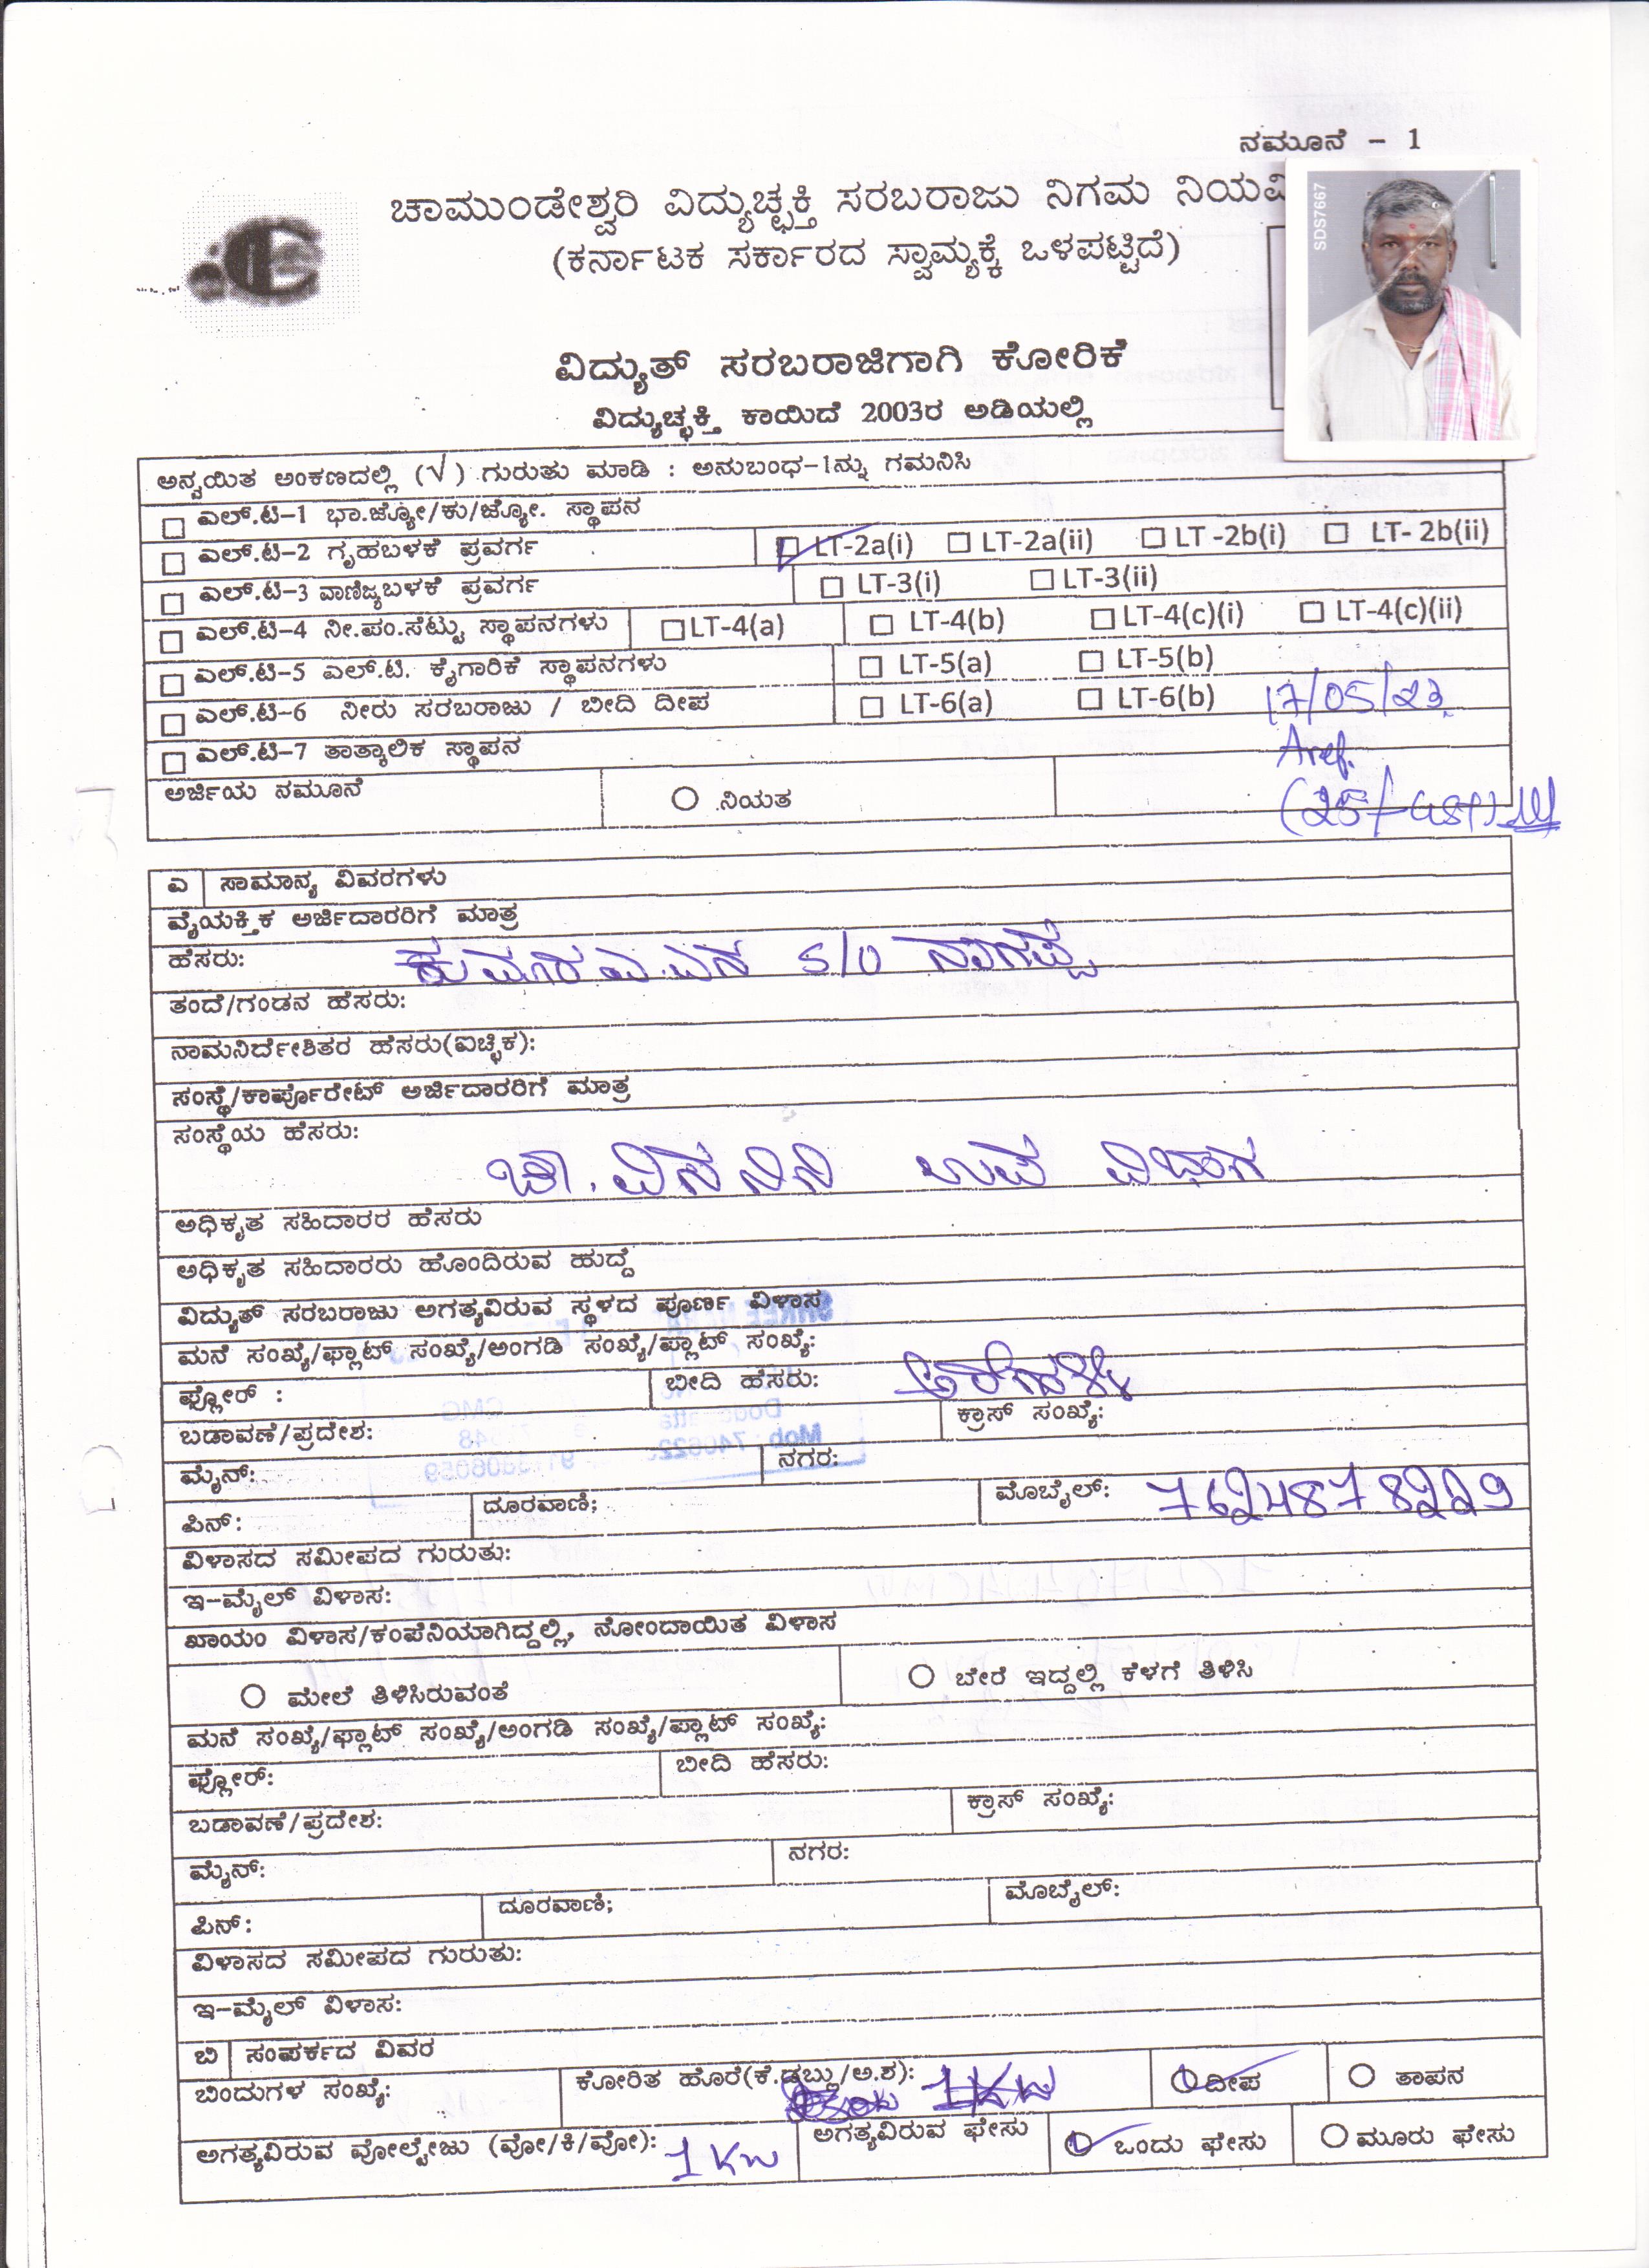 ನಮೂನೆ - 1
ಚಾಮುಂಡೇಶ್ವರಿ ವಿದ್ಯುಚ್ಛಕ್ತಿ ಸರಬರಾಜು ನಿಗಮ
(ಕರ್ನಾಟಕ ಸರ್ಕಾರದ ಸ್ವಾಮ್ಯಕ್ಕೆ ಒಳಪಟ್ಟಿದೆ)
SDS7667
ವಿದ್ಯುತ್ ಸರಬರಾಜಿಗಾಗಿ ಕೋರಿಕೆ
ವಿದ್ಯುಚ್ಛಕ್ತಿ ಕಾಯಿದೆ 2003ರ ಅಡಿಯಲ್ಲಿ
ಅನ್ವಯಿತ ಅಂಕಣದಲ್ಲಿ (√) ಗುರುತು ಮಾಡಿ : ಅನುಬಂಧ-1ನ್ನು ಗಮನಿಸಿ
ಎಲ್.ಟಿ-1 ಭಾ.ಜ್ಯೋ/ಕು/ಜ್ಯೋ. ಸ್ಥಾಪನ
ಎಲ್.ಟಿ-2 ಗೃಹಬಳಕೆ ಪ್ರವರ್ಗ LT-2a(i) LT-2a(ii) LT -2b(i) LT- 2b(ii)
ಎಲ್.ಟಿ-3 ವಾಣಿಜ್ಯಬಳಕೆ ಪ್ರವರ್ಗ LT-3(i) LT-3(ii)
ಎಲ್.ಟಿ-4 ನೀ.ಪಂ.ಸೆಟ್ಟು ಸ್ಥಾಪನಗಳು LT-4(a) LT-4(b) LT-4(c)(i) LT-4(c)(ii)
ಎಲ್.ಟಿ-5 ಎಲ್.ಟಿ. ಕೈಗಾರಿಕೆ ಸ್ಥಾಪನಗಳು LT-5(a) LT-5(b)
ಎಲ್.ಟಿ-6 ನೀರು ಸರಬರಾಜು / ಬೀದಿ ದೀಪ LT-6(a) LT-6(b) 17/05/23
ಎಲ್.ಟಿ-7 ತಾತ್ಕಾಲಿಕ ಸ್ಥಾಪನ
ಅರ್ಜಿಯ ನಮೂನೆ ನಿಯತ
ಎ ಸಾಮಾನ್ಯ ವಿವರಗಳು
ವೈಯಕ್ತಿಕ ಅರ್ಜಿದಾರರಿಗೆ ಮಾತ್ರ
ಹೆಸರು: ಕುಮಾರ ಎ.ಎನ್ S/O ನಾಗಪ್ಪ
ತಂದೆ/ಗಂಡನ ಹೆಸರು:
ನಾಮನಿರ್ದೇಶಿತರ ಹೆಸರು(ಐಚ್ಛಿಕ):
ಸಂಸ್ಥೆ/ಕಾರ್ಪೊರೇಟ್ ಅರ್ಜಿದಾರರಿಗೆ ಮಾತ್ರ
ಸಂಸ್ಥೆಯ ಹೆಸರು:
ಚಾ.ವಿಸನಿನಿ ಉಪ ವಿಭಾಗ
ಅಧಿಕೃತ ಸಹಿದಾರರ ಹೆಸರು
ಅಧಿಕೃತ ಸಹಿದಾರರು ಹೊಂದಿರುವ ಹುದ್ದೆ
ವಿದ್ಯುತ್ ಸರಬರಾಜು ಅಗತ್ಯವಿರುವ ಸ್ಥಳದ ಪೂರ್ಣ ವಿಳಾಸ
ಮನೆ ಸಂಖ್ಯೆ/ಫ್ಲಾಟ್ ಸಂಖ್ಯೆ/ಅಂಗಡಿ ಸಂಖ್ಯೆ/ಪ್ಲಾಟ್ ಸಂಖ್ಯೆ:
ಫ್ಲೋರ್ : ಬೀದಿ ಹೆಸರು:
ಬಡಾವಣೆ/ಪ್ರದೇಶ: ಕ್ರಾಸ್ ಸಂಖ್ಯೆ:
ಮೈನ್: ನಗರ:
ಪಿನ್: ದೂರವಾಣಿ; ಮೊಬೈಲ್: 7624878229
ವಿಳಾಸದ ಸಮೀಪದ ಗುರುತು:
ಇ-ಮೈಲ್ ವಿಳಾಸ:
ಖಾಯಂ ವಿಳಾಸ/ಕಂಪೆನಿಯಾಗಿದ್ದಲ್ಲಿ, ನೋಂದಾಯಿತ ವಿಳಾಸ
ಮೇಲೆ ತಿಳಿಸಿರುವಂತೆ ಬೇರೆ ಇದ್ದಲ್ಲಿ ಕೆಳಗೆ ತಿಳಿಸಿ
ಮನೆ ಸಂಖ್ಯೆ/ಫ್ಲಾಟ್ ಸಂಖ್ಯೆ/ಅಂಗಡಿ ಸಂಖ್ಯೆ/ಪ್ಲಾಟ್ ಸಂಖ್ಯೆ:
ಫ್ಲೋರ್: ಬೀದಿ ಹೆಸರು:
ಬಡಾವಣೆ/ಪ್ರದೇಶ: ಕ್ರಾಸ್ ಸಂಖ್ಯೆ:
ಮೈನ್: ನಗರ:
ಪಿನ್: ದೂರವಾಣಿ; ಮೊಬೈಲ್:
ವಿಳಾಸದ ಸಮೀಪದ ಗುರುತು:
ಇ-ಮೈಲ್ ವಿಳಾಸ:
ಬಿ ಸಂಪರ್ಕದ ವಿವರ
ಬಿಂದುಗಳ ಸಂಖ್ಯೆ: ಕೋರಿತ ಹೊರೆ(ಕೆ.ಡಬ್ಲು/ಅ.ಶ): 1KW ದೀಪ ತಾಪನ
ಅಗತ್ಯವಿರುವ ವೋಲ್ಟೇಜು (ವೋ/ಕಿ/ವೋ): 1 KW ಅಗತ್ಯವಿರುವ ಫೇಸು ಒಂದು ಫೇಸು ಮೂರು ಫೇಸು